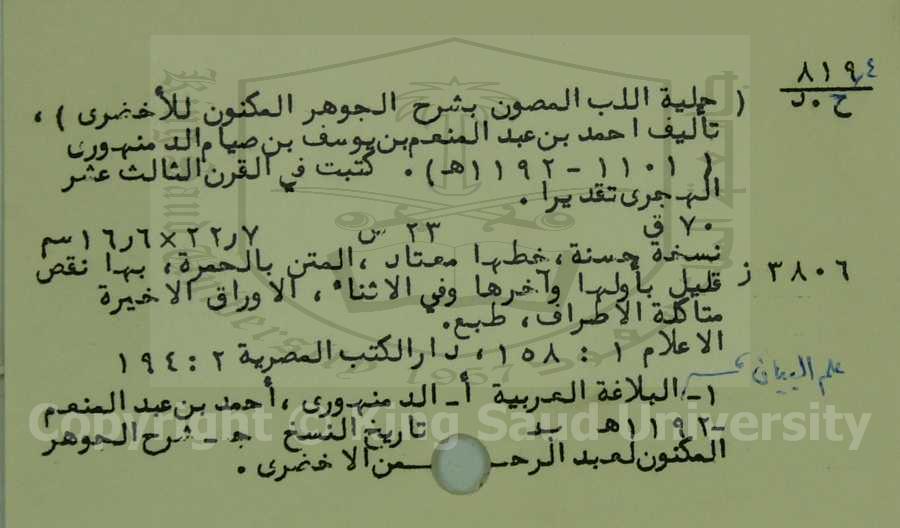 ٨١٩٤
ح . د
( حلية اللب المصون بشرح الجوهر المكنون للأخضرى ) ،
تأليف احمد بن عبد المنعم بن يوسف بن صيام الدمنهورى
( ١١٠١ - ١١٩٢هـ ) . كتبت في القرن الثالث عشر
الهجرى تقديرا .
٧٠ ق ٢٣ س ٢٢٫٧×١٦٫٦ سم
نسخة حسنة ، خطها معتاد ، المتن بالحمرة ، بها نقص
٣٨٠٦ ز
قليل بأولها وآخرها وفي الاثناء ، الاوراق الاخيرة
متآكلة الاطراف ، طبع .
الاعلام ١ : ١٥٨ ، دار الكتب المصرية ٢ : ١٩٤
علم البيان
١- البلاغة العربية أ - الدمنهورى ، أحمد بن عبد المنعم
- ١١٩٢هـ ب - تاريخ النسخ ج - شرح الجوهر
المكنون لعبد الرحمن الاخضرى .
Copyright © King Saud University
1957